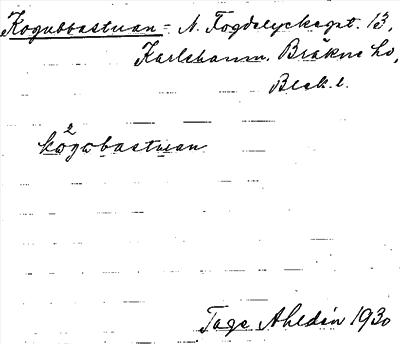 Kogubbastuan = N. Fogdelyckegat. 13,
Karlshamn, Bräkne hd,
Blek. l.
kogobastuan
2
Tage Ahldén 1930